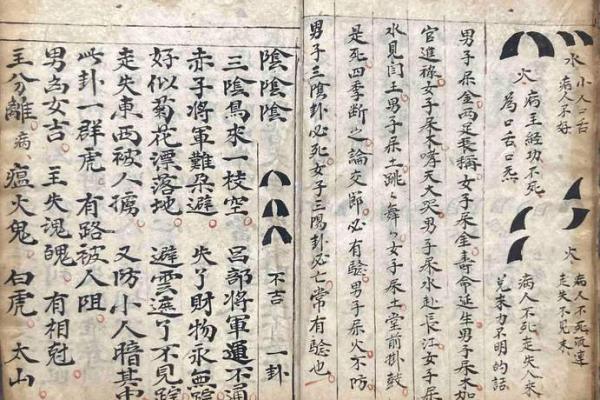 水 小人口舌
病人不好
火 病王經功不死
為口舌口炁
火 病人不死破運
走失不見來
病人不死走失人來
兒未力不明的話
男子呆金兩足長稱女子呆金壽命延生男子呆木加
官進祿女子呆木哮天大哭男子呆水赴長江女子呆
水見閻王男子呆土跳舞女子呆土堂前掛鼓
是死四季斷之論交節必有驗男子呆火不防
男子三陰卦必死女子三陽卦必亡常有驗也
陰陰陰 不吉 一卦
三陰鳥來一枝空 呂部將軍運不通
赤子將軍難朵避 失了財物永無踪
好似菊花漂落地 避雲遮了不見踪
走失東西被人擄 又防小人暗其中
此卦一群虎 有路被人阻
男為女吉 王失魂魄 有相尅
主分離 病 瘟火鬼 白虎 太山